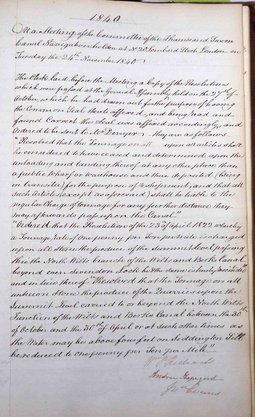 1840
At a Meeting of the Committee of the Thames and Severn
Canal Navigation holden at No 20 Lombard Street London on
Tuesday the 24th November 1840
The Clerk laid before the Meeting a Copy of the Resolutions
which were passed at the General Assembly held on the 27th of
October, which he had drawn out for the purpose of having
the Common Seal thereto affixed, and being read and
found Correct the Seal was affixed accordingly, and
Ordered to be sent to Mr Denyer. They are as follows
"Resolved that the Tonnage on all upon articles shall
be considered to have ceased and determined upon the
unloading and landing thereof at any other place than
a public Wharf or Warehouse and there deposited (being
in transitu) for the purpose of reshipment, and that all
such articles (except as aforesaid) shall be liable to the
regular charge of tonnage for any further distance they
may afterwards pass upon the Canal."
"Ordered, that the Resolution of the 23d of April 1822 whereby
a Tonnage rate of One penny per Ton per mile is charged
upon all Stone the produce of the Summit level passing
thro' the North Wilts branch of the Wilts and Berks Canal,
beyond Seven Lock be the same is hereby rescinded
and in lieu thereof "Resolved that the Tonnage on all
unhewn Stone the produce of the Quarries upon the
Summit Level carried to or beyond the North Wilts
Junction of the Wilts and Berks Canal between the 30th
of October and the 30th of April or at such other times as
the Water may be above four feet on Seddington Sill
be reduced to one penny per Ton per Mile"